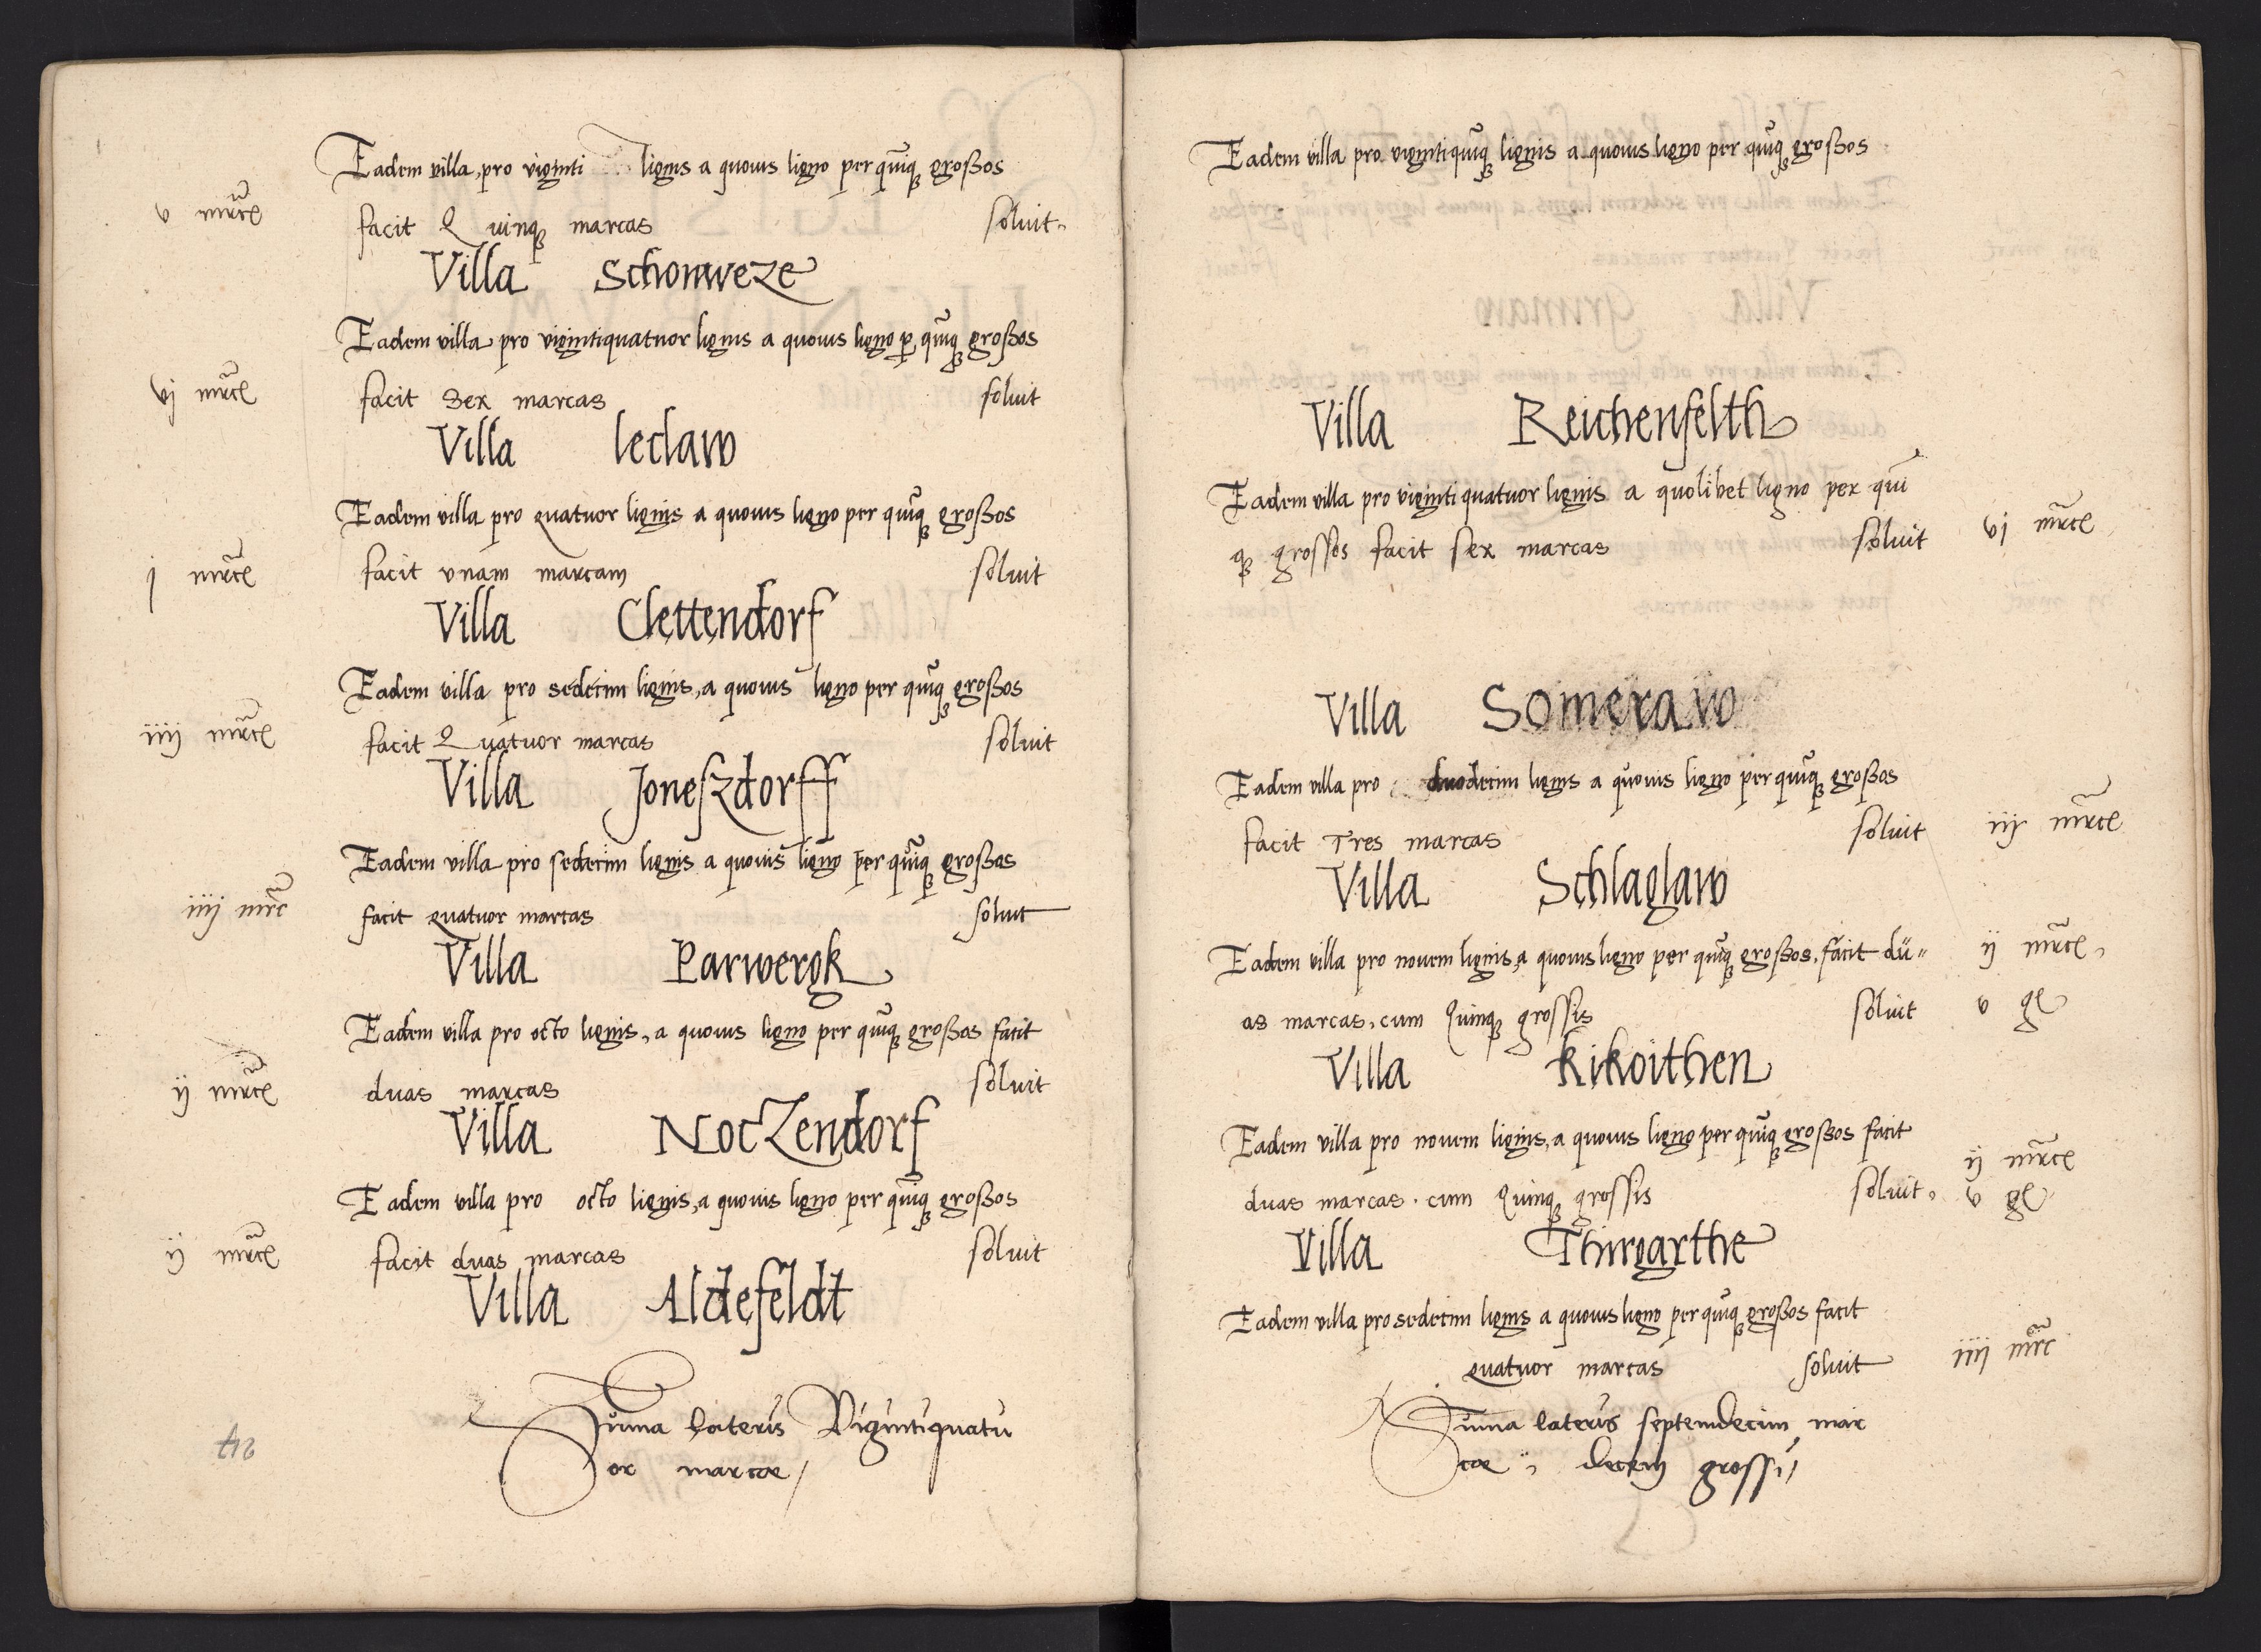 Eadem villa, pro viginti lignis a quouis ligno per quĩqꝫ großos
v mrce facit Quinqꝫ marcas soluit
Villa Schonweze
Eadem villa pro vigintiquatuor lignis a quouis ligno ꝑ quĩqꝫ großos
vj mrce facit Sex marcas soluit
Villa leclaw
Eadem villa pro quatuor lignis a quouis ligno per quĩqꝫ großos
j mrce facit vnam marcam soluit
Villa Clettendorf
Eadem villa pro sedecim lignis, a quouis ligno per quĩqꝫ großos
iiij mrce facit Quatuor marcas soluit
Villa Joneszdorff
Eadem villa pro sedecim lignis a quouis ligno per quĩqꝫ großos
iiij mrc facit quatuor marcas soluit
Villa Parwergk
Eadem villa pro octo lignis, a quouis ligno per quĩqꝫ großos facit
ij mrce duas marcas soluit
Villa Noczendorf
Eadem villa pro octo lignis, a quouis ligno per quĩqꝫ großos
ij mrce facit duas marcas soluit
Villa Aldefeldt
Suma lateris Vigintiquatu
or marcae
Eadem villa pro vigintiquĩqꝫ lignis a quouis ligno per quĩqꝫ großos
Villa Reichenfelth
Eadem villa pro viginti quatuor lignis a quolibet ligno per qui
qꝫ grossos facit sex marcas soluit vj mrce
Villa Someraw
Eadem villa pro duodecim lignis a quouis ligno per quĩqꝫ großos
facit Tres marcas soluit iij mrce
Villa Schlaglaw
Eadem villa pro nouem lignis, a quouis ligno per quĩqꝫ großos, facit du" ij mrce
as marcas, cum Quinqꝫ grossis soluit v gℓ
Villa Kikoithen
Eadem villa pro nouem lignis, a quouis ligno per quĩqꝫ großos facit ij mrce
duas marcas. cum Quinqꝫ grossis soluit v gℓ
Villa Thirgarthe
Eadem villa pro sedecim lignis a quouis ligno per quĩqꝫ großos facit
quatuor marcas soluit iiij mrc
Suma lateris septemdecim mar
cae decem grossi